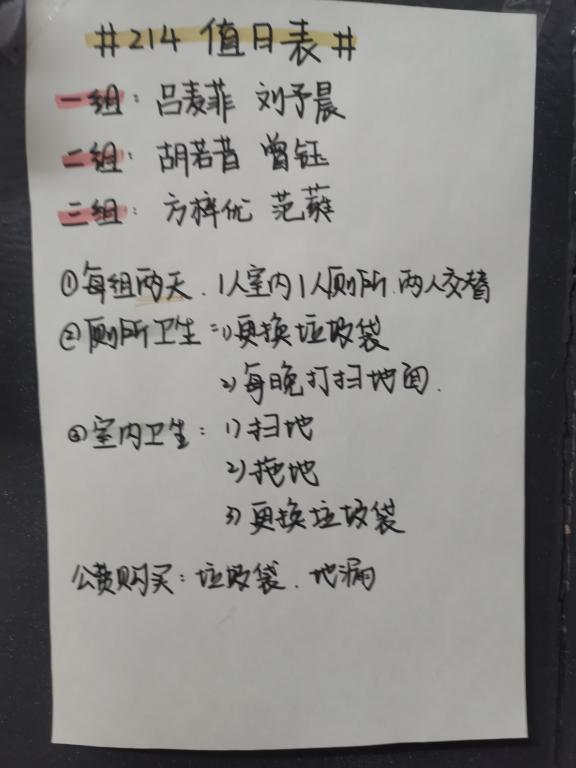 #214 值日表#
一组：吕麦菲 刘予晨
二组：胡若昔 曾钰
三组：方梓优 范蕤
①每组两天．1人室内1人厕所．两人交替
②厕所卫生：1)更换垃圾袋
2)每晚打扫地面．
③室内卫生：1)扫地
2)拖地
3)更换垃圾袋
公费购买：垃圾袋．地漏